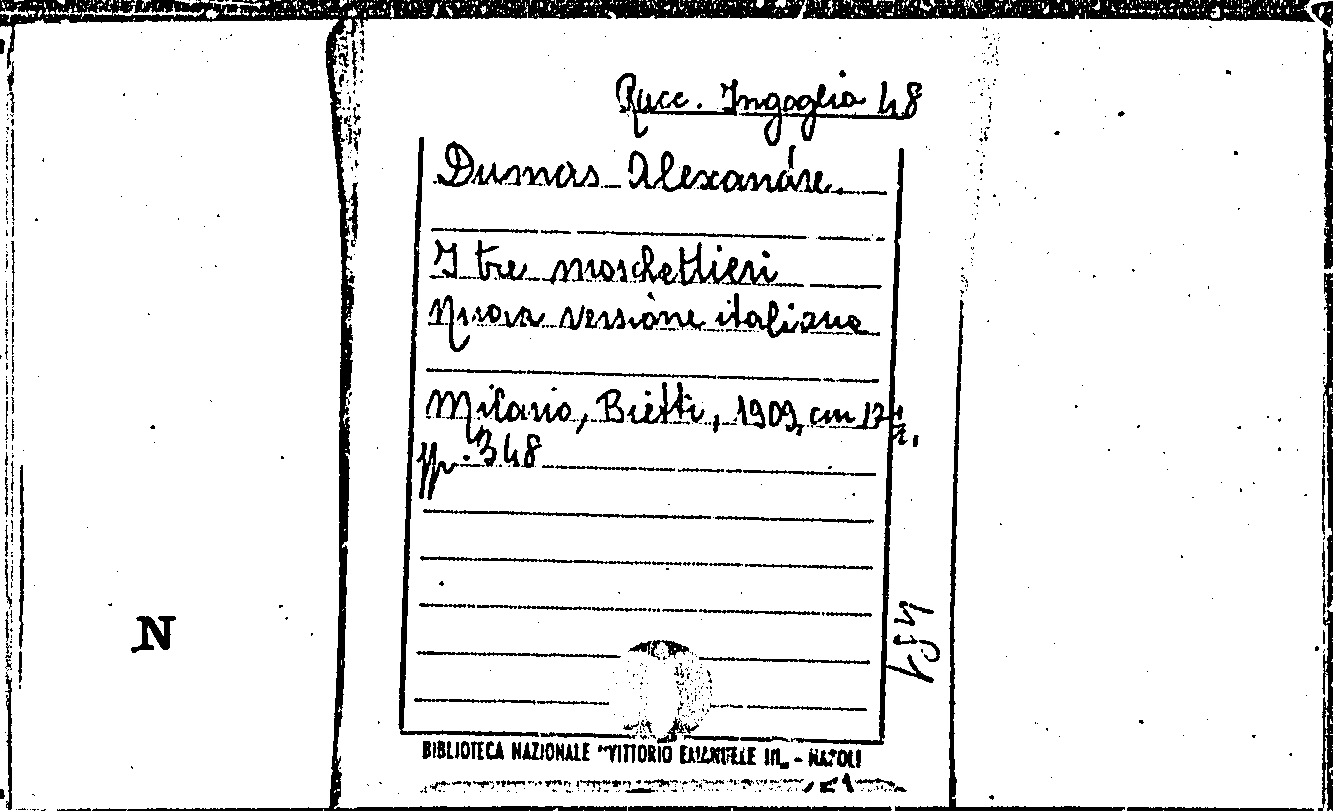 Racc. Ingoglia 48
Dumas Alexandre
I tre moschettieri
Nuova versione italiana
Milano, Bietti, 1909, cm 17½.
pp. 348
N
BIBLIOTECA NAZIONALE "VITTORIO EMANUELE III„ - NAPOLI